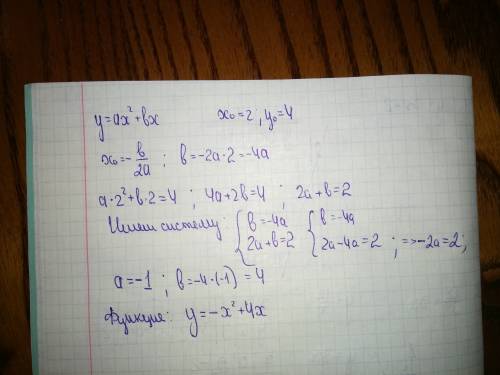 y=ax²+bx   x₀=2; y₀=4
x₀=-b/2a; b=-2a·2=-4a
a·2²+b·2=4; 4a+2b=4; 2a+b=2
Имеем систему: {b=-4a 2a+b=2 {b=-4a 2a-4a=2; =>-2a=2;
a=-1; b=-4·(-1)=4
Функция: y=-x²+4x